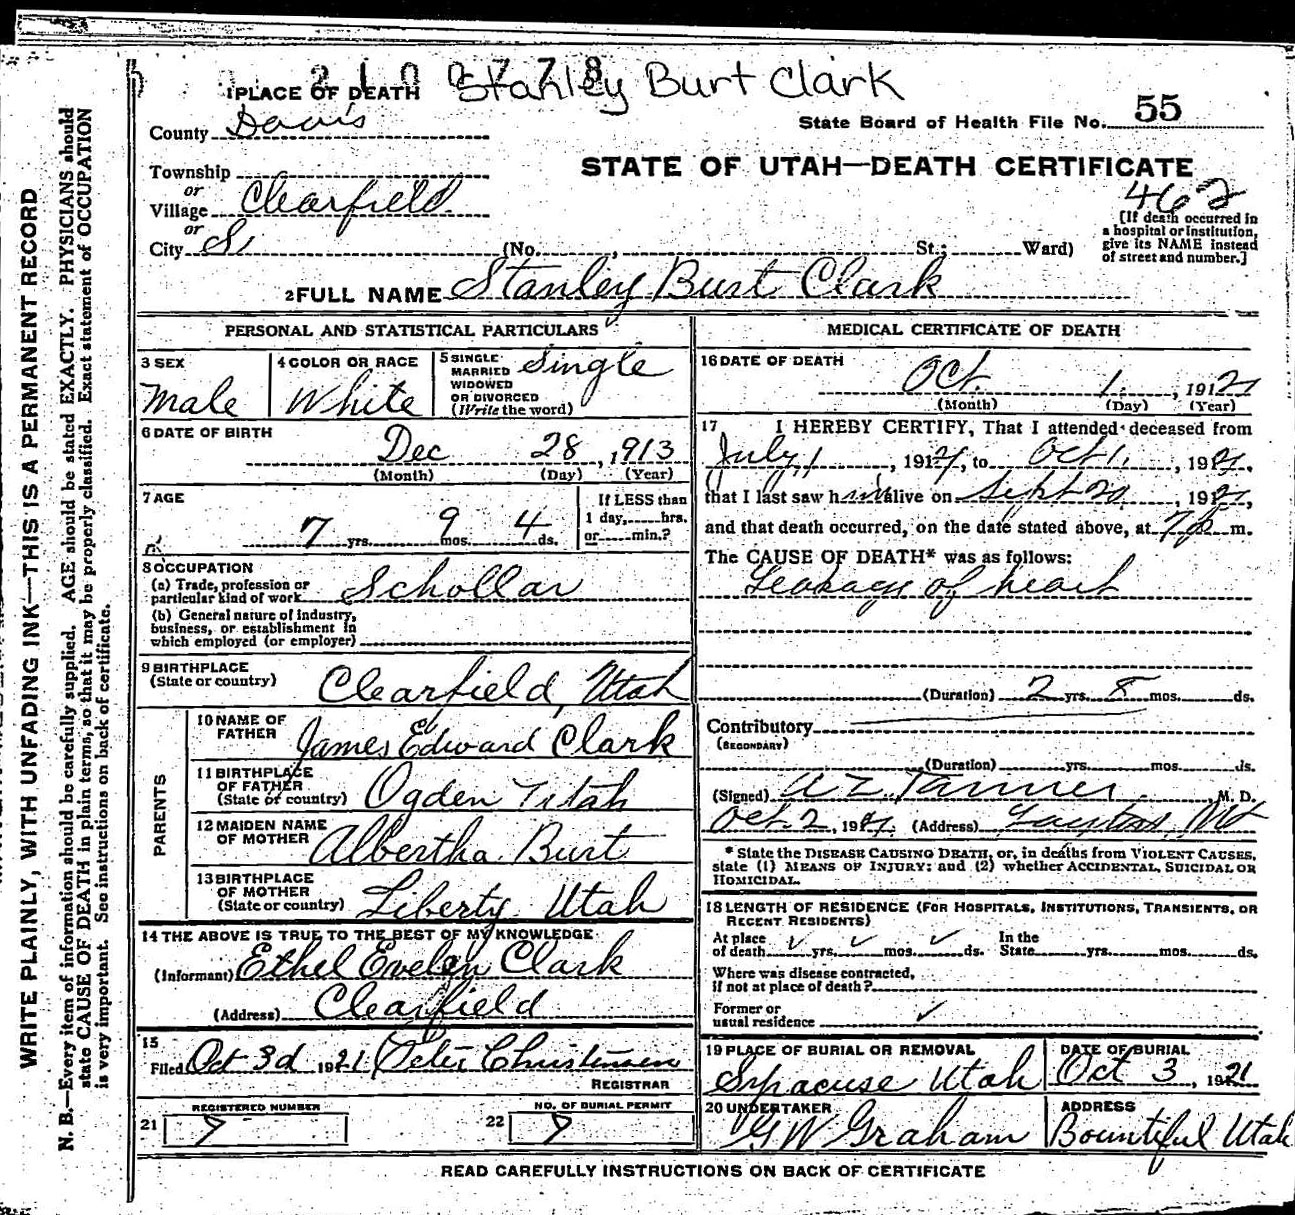 2100778 Stanley Burt Clark
1 PLACE OF DEATH
County Davis
State Board of Health File No. 55
STATE OF UTAH—DEATH CERTIFICATE
462
Township
or
Village Clearfield
or
City (No. , St.; Ward)
[If death occurred in
a hospital or institution,
give its NAME instead
of street and number.]
2 FULL NAME Stanley Burt Clark
PERSONAL AND STATISTICAL PARTICULARS
3 SEX
Male
4 COLOR OR RACE
White
5 SINGLE
MARRIED
WIDOWED
OR DIVORCED
(Write the word)
Single
6 DATE OF BIRTH
Dec 28, 1913
(Month) (Day) (Year)
7 AGE
7 yrs. 9 mos. 4 ds.
If LESS than
1 day, hrs.
or min.?
8 OCCUPATION
(a) Trade, profession or
particular kind of work Schollar
(b) General nature of industry,
business, or establishment in
which employed (or employer)
9 BIRTHPLACE
(State or country) Clearfield, Utah
PARENTS
10 NAME OF
FATHER James Edward Clark
11 BIRTHPLACE
OF FATHER
(State or country) Ogden Utah
12 MAIDEN NAME
OF MOTHER Albertha Burt
13 BIRTHPLACE
OF MOTHER
(State or country) Liberty Utah
14 THE ABOVE IS TRUE TO THE BEST OF MY KNOWLEDGE
(Informant) Ethel Evelen Clark
(Address) Clearfield
15
Filed Oct 3d 1921 Peter Christensen
REGISTRAR
REGISTERED NUMBER
21 7
NO. OF BURIAL PERMIT
22 7
MEDICAL CERTIFICATE OF DEATH
16 DATE OF DEATH
Oct. 1, 1921
(Month) (Day) (Year)
17 I HEREBY CERTIFY, That I attended deceased from
July 1, 1921, to Oct 1, 1921,
that I last saw him alive on Sept 20, 1921,
and that death occurred, on the date stated above, at 7 p m.
The CAUSE OF DEATH* was as follows:
Leakage of heart
(Duration) 2 yrs. 8 mos. ds.
Contributory
(SECONDARY)
(Duration) yrs. mos. ds.
(Signed) A Z Tanner M. D.
Oct 2, 1921 (Address) Layton, Ut
* State the DISEASE CAUSING DEATH, or, in deaths from VIOLENT CAUSES,
state (1) MEANS OF INJURY; and (2) whether ACCIDENTAL, SUICIDAL OR
HOMICIDAL.
18 LENGTH OF RESIDENCE (FOR HOSPITALS, INSTITUTIONS, TRANSIENTS, OR
RECENT RESIDENTS)
At place
of death yrs. mos. ds. In the
State yrs. mos. ds.
Where was disease contracted,
if not at place of death?
Former or
usual residence
19 PLACE OF BURIAL OR REMOVAL
Syracuse Utah
DATE OF BURIAL
Oct 3, 1921
20 UNDERTAKER
G W Graham
ADDRESS
Bountiful Utah
READ CAREFULLY INSTRUCTIONS ON BACK OF CERTIFICATE
WRITE PLAINLY, WITH UNFADING INK—THIS IS A PERMANENT RECORD
N. B.—Every item of information should be carefully supplied. AGE should be stated EXACTLY. PHYSICIANS should
state CAUSE OF DEATH in plain terms, so that it may be properly classified. Exact statement of OCCUPATION
is very important. See instructions on back of certificate.